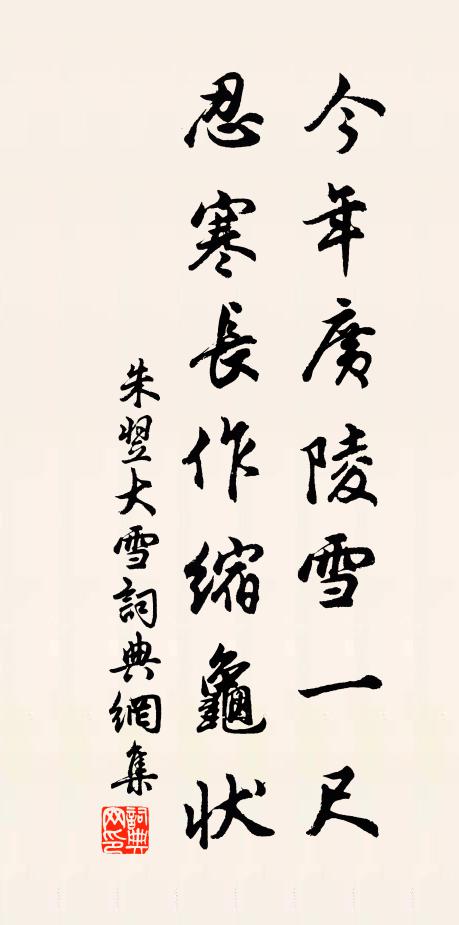 今年廣陵雪一尺
忍寒長作縮龜狀
朱翌大雪詞典網集
詞典網印